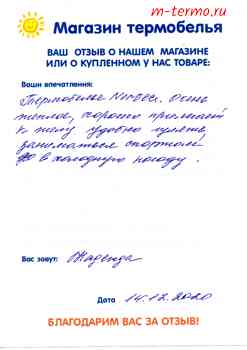 m-termo.ru
Магазин термобелья
ВАШ ОТЗЫВ О НАШЕМ МАГАЗИНЕ
ИЛИ О КУПЛЕННОМ У НАС ТОВАРЕ:
Ваши впечатления:
Термобелье Norveg. Очень
теплое, хорошо прилегает
к телу удобно гулять,
заниматься спортом
в холодную погоду.
Вас зовут: Надежда
Дата 14.12.2020
БЛАГОДАРИМ ВАС ЗА ОТЗЫВ!